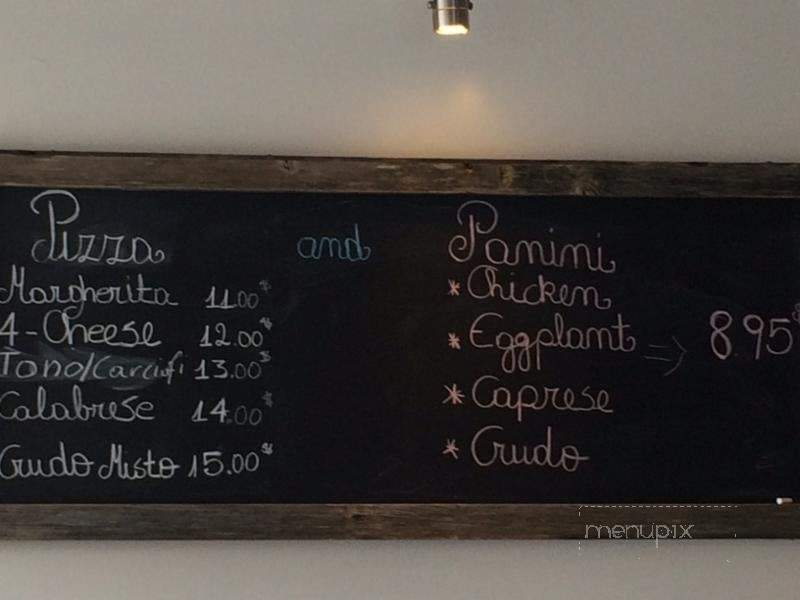 Pizza and Panini
Margherita 11.00$
4-Cheese 12.00$
Tono/Carciofi 13.00$
Calabrese 14.00$
Crudo Misto 15.00$
* Chicken
* Eggplant => 8.95$
* Caprese
* Crudo
menupix